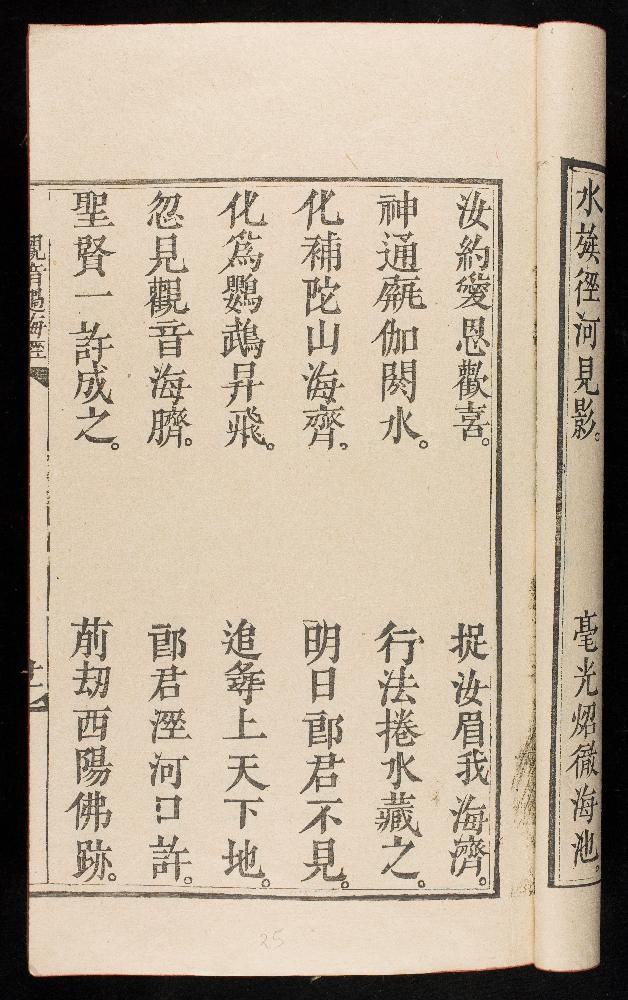 水族徑河見影。 毫光炤徹海池。
汝約愛恩歡喜。 捉汝眉我海濟。
神通伽閼水。 行法捲水藏之。
化補陀山海齊。 明日郎君不見。
化爲鸚鵡昇飛。 追尋上天下地。
忽見觀音海臍。 郎君溼河口許。
聖賢一許成之。 前劫西陽佛跡。
觀音過海經
25